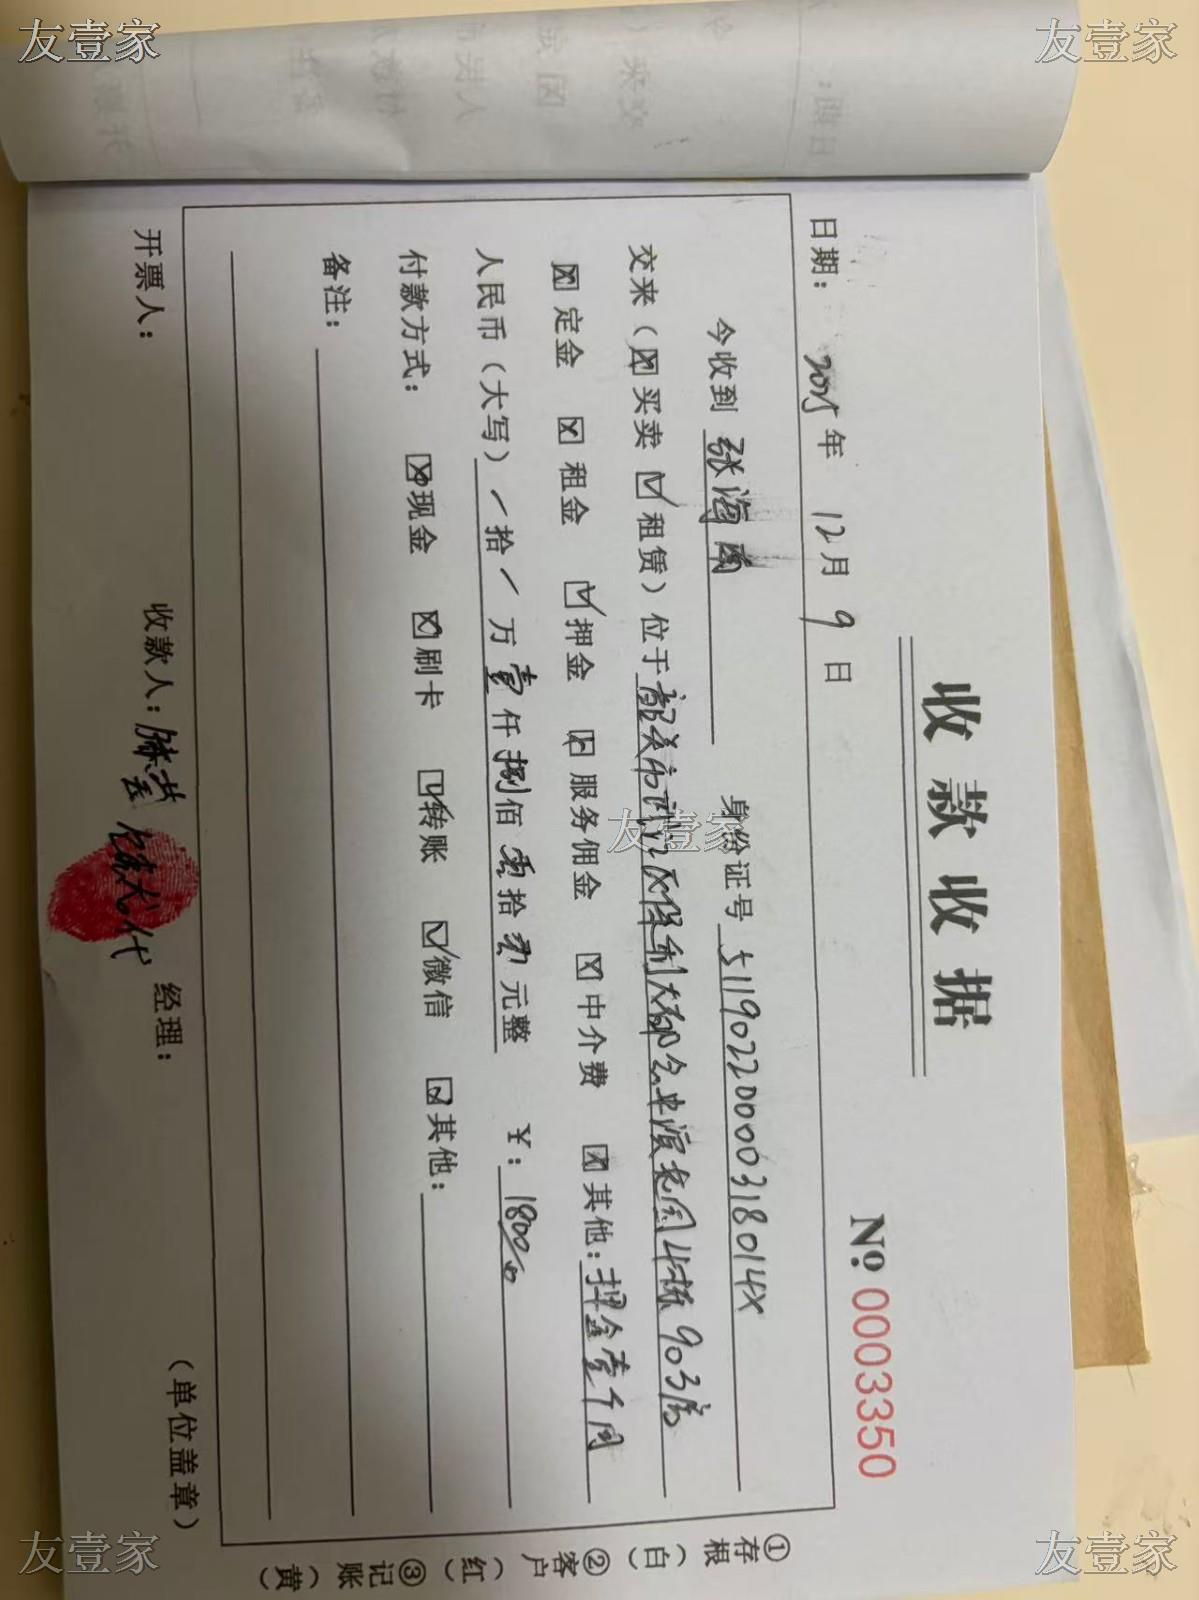 友壹家
友壹家
收款收据
No. 0003350
日期: 2025年 12月 9日
今收到 张海南 身份证号 51190220000318014X
交来(☒买卖 ☑租赁)位于韶关市武江区保利大都会 花园4栋903房
☒定金 ☒租金 ☑押金 服务佣金 ☒中介费 其他:押金壹千
人民币(大写) / 拾 / 万 壹 仟 捌 佰 零 拾 零 元整 ¥: 1800
付款方式: ☒现金 ☒刷卡 ☑转账 ☑微信 ☑其他:
备注:
开票人: 收款人: 代 经理: (单位盖章)
①存根(白) ②客户(红) ③记账(黄)
友壹家
友壹家
友壹家